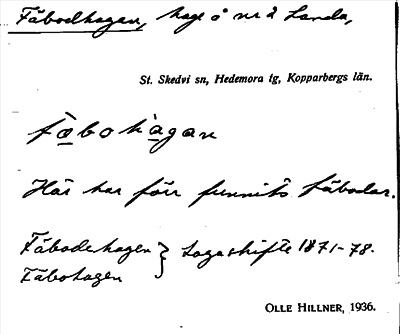 Fäbodhagen, hage å nr 2 Landa,
St. Skedvi sn, Hedemora tg, Kopparbergs län.
fæbohagan
Här har förr funnits fäbodar.
Fäbodehagen } Lagaskifte 1871-78.
Fäbohagen
OLLE HILLNER, 1936.